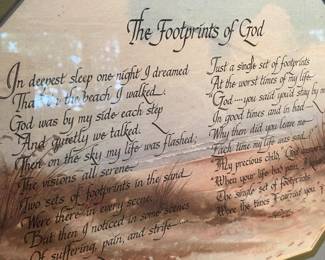 The Footprints of God
In deepest sleep one night I dreamed
That on the beach I walked
God was by my side each step
And quietly we talked.
Then on the sky my life was flashed,
The visions all serene
Two sets of footprints in the sand
Were there in every scene.
But then I noticed in some scenes
Of suffering, pain, and strife
Just a single set of footprints
At the worst times of my life
"God—you said you'd stay by m
In good times and in bad
Why then did you leave me
Each time my life was sad
"My precious child, God
"When your life had pain
The single set of footprints
Were the times I carried you